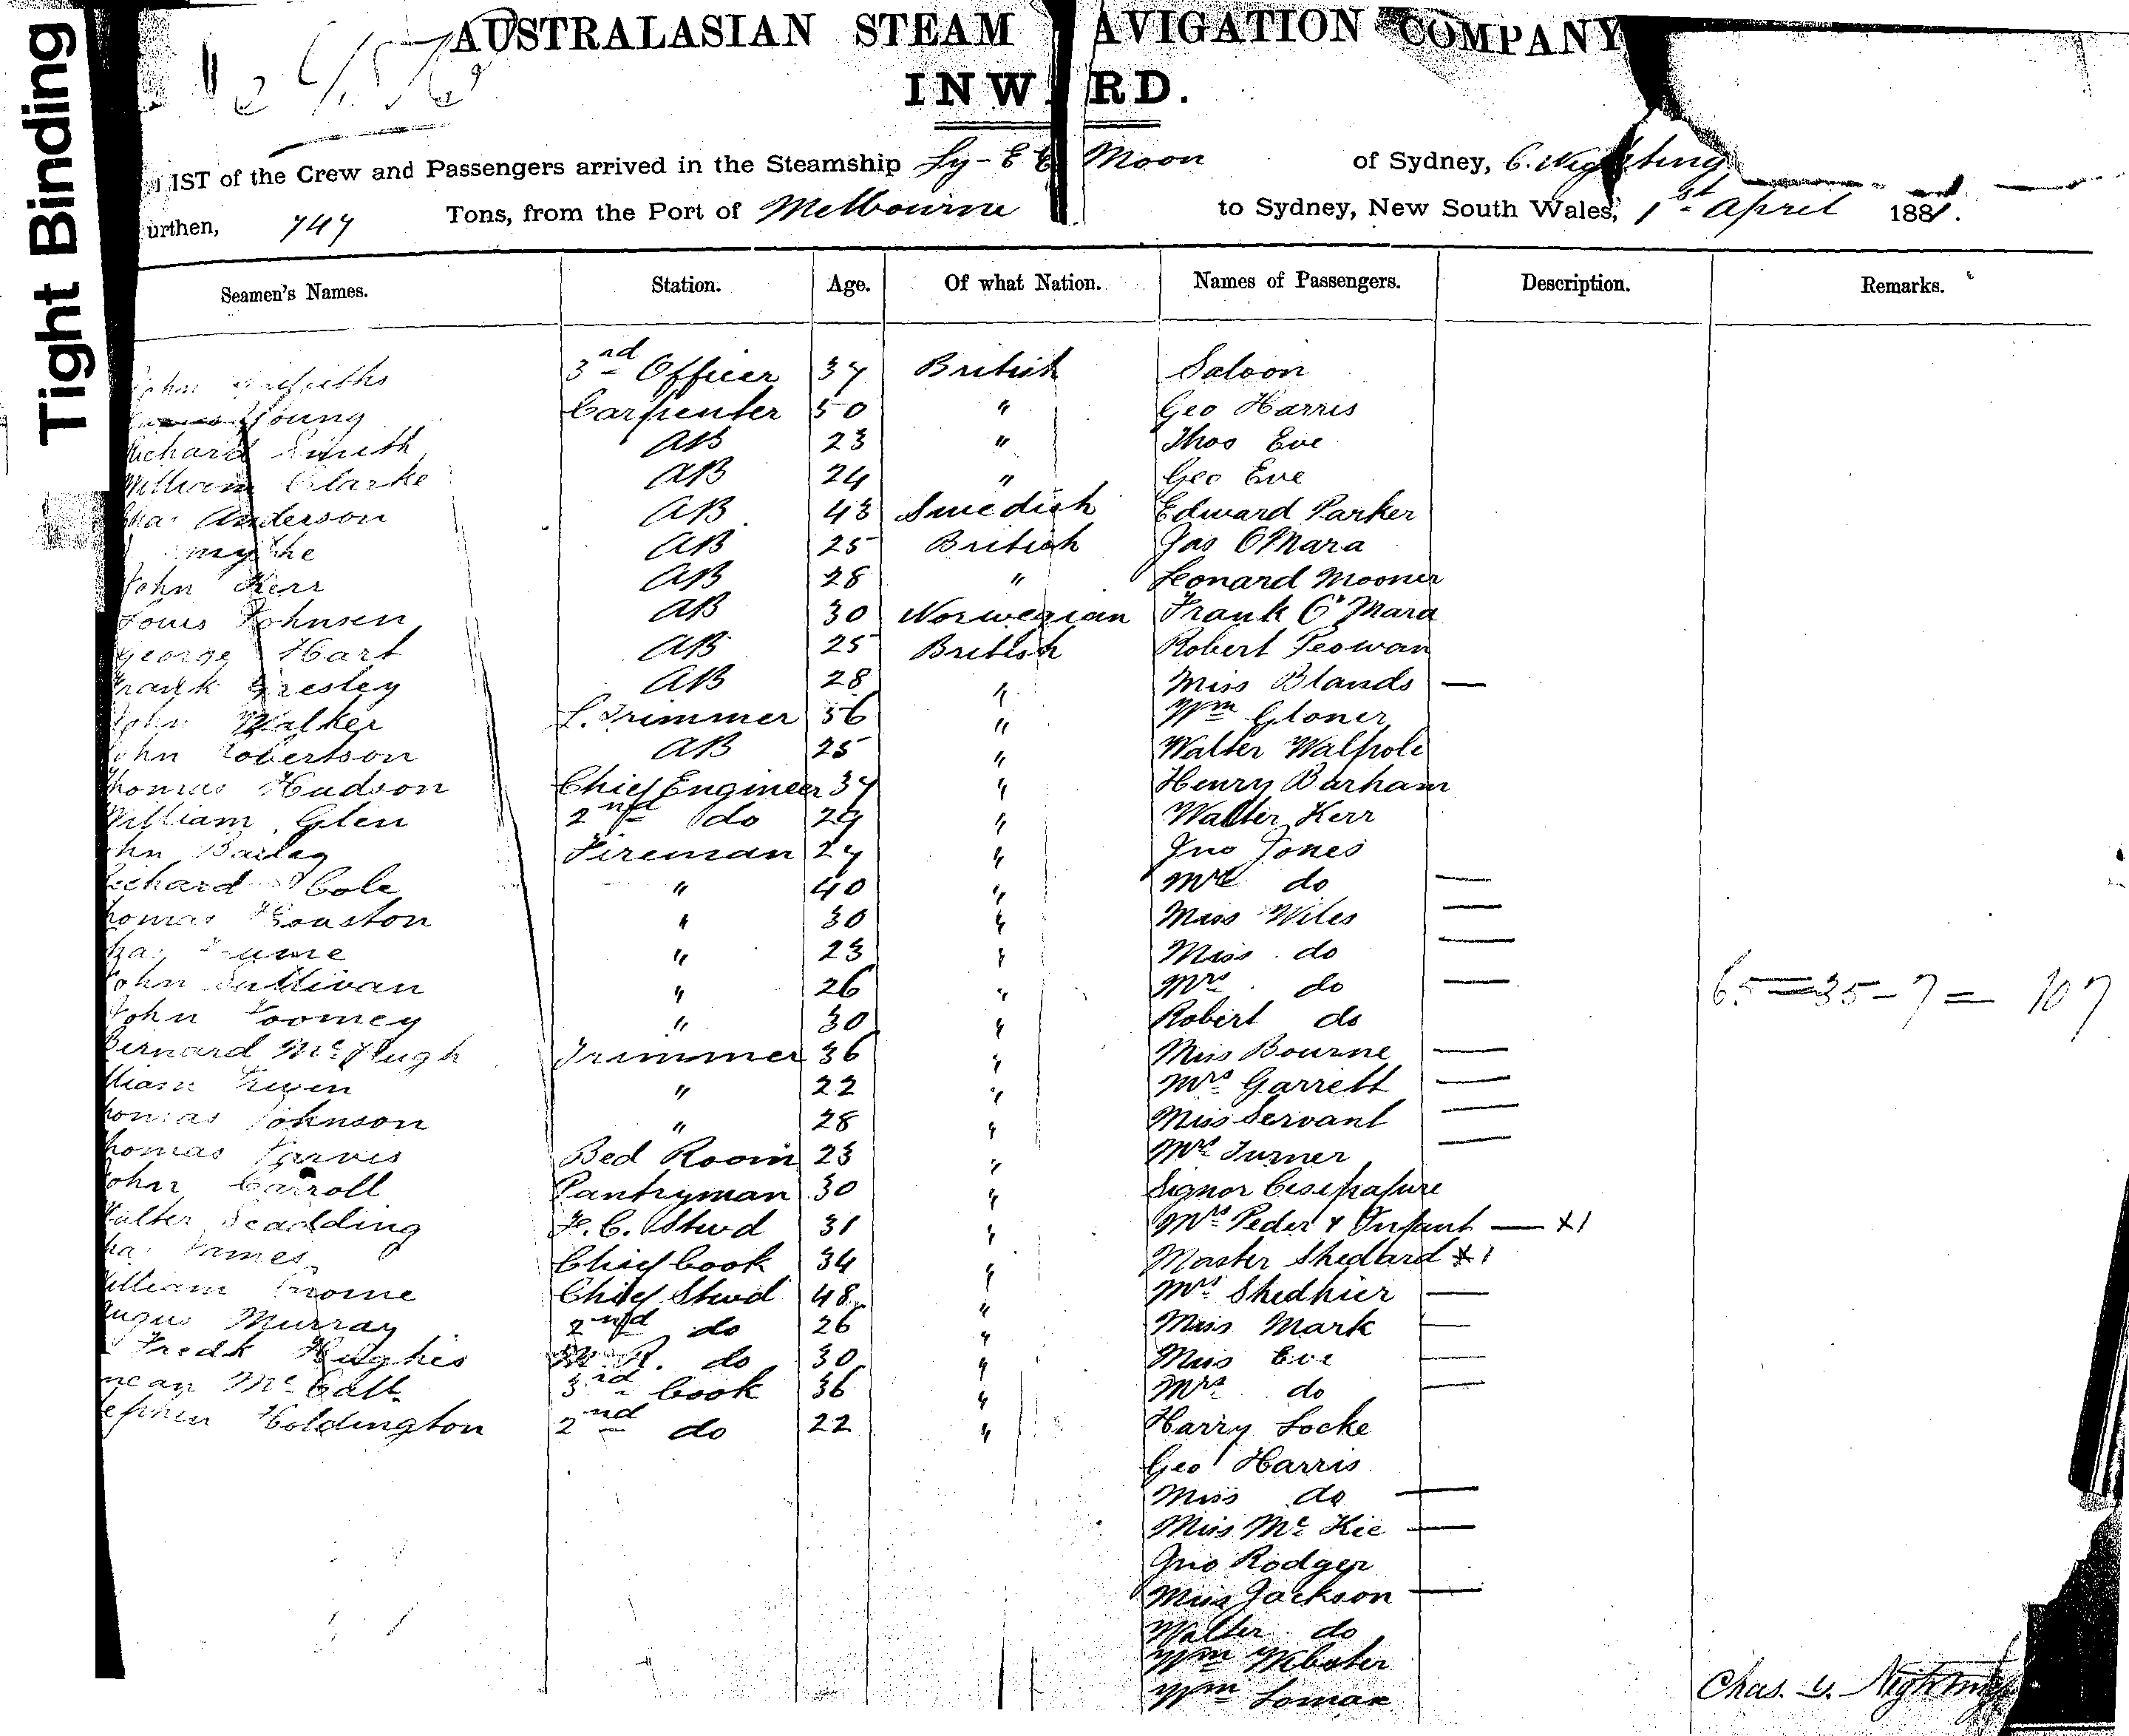 Tight Binding
AUSTRALASIAN STEAM AVIGATION COMPANY
INW RD.
IST of the Crew and Passengers arrived in the Steamship Ly-E E Moon of Sydney, C.
urthen, 747 Tons, from the Port of Melbourne to Sydney, New South Wales, 1st April 1881.
Seamen's Names. Station. Age. Of what Nation. Names of Passengers. Description. Remarks.
3rd Officer 37 British Saloon
Young Carpenter 50 " Geo Harris
Richard Smith AB 23 " Thos Eve
William Clarke AB 24 " Geo Eve
Cha. Anderson AB 43 Swedish Edward Parker
AB 25 British Jas OMara
John Kerr AB 28 " Leonard Mooner
Louis Johnsen AB 30 Norwegian Frank O'Mara
George Hart AB 25 British Robert
Frank Gresley AB 28 " Miss Blands —
John Walker L. Trimmer 36 " Wm
John Robertson AB 25 " Walter Walpole
homas Hudson Chief Engineer 37 " Henry Barham
William Glen 2nd do 29 " Walter Kerr
hn Bailey Fireman 27 " Jno Jones
Richard Cole " 40 " Mrs do —
homas Houston " 30 " Miss Wiles —
" 23 " Miss do —
John Sullivan " 26 " Mrs do — 65 — 35 - 7 = 107
John Toomey " 30 " Robert do
Bernard McHugh Trimmer 36 " Miss Bourne —
lliam Irwin " 22 " Mrs Garrett —
homas Johnson " 28 " Miss Servant —
homas Bed Room 23 " Mrs Turner —
John Carroll Pantryman 30 " Signor
Walter Scadding F. C. Stwd 31 " Mrs Peder & Infant — x1
James Chief Cook 34 " Master Shedard x1
William Chief Stwd 48 " Mrs Shedhier —
Angus Murray 2nd do 26 " Miss Mark —
Fredk Hughes do 30 " Miss Eve —
3rd Cook 36 " Mrs do —
tephen Holdington 2nd do 22 " Harry Locke
Geo Harris
Miss do —
Miss McKie —
Jno Rodger
Miss Jackson —
Walter do
Wm Webster
Wm Lomax
Chas.